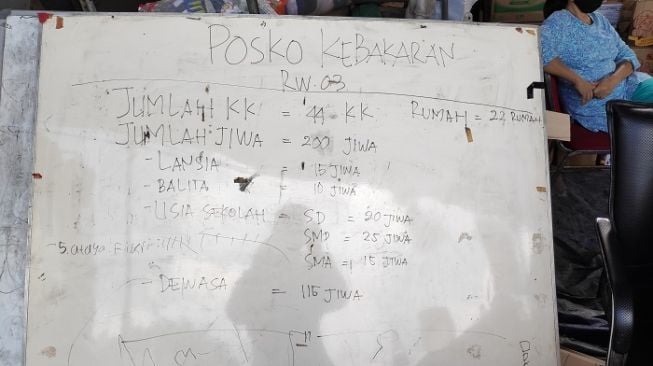 POSKO KEBAKARAN
RW. 03
JUMLAH KK = 44 KK RUMAH = 22 RUMAH
JUMLAH JIWA = 200 JIWA
- LANSIA = 15 JIWA
- BALITA = 10 JIWA
- USIA SEKOLAH = SD = 20 JIWA
SMP = 25 JIWA
SMA = 15 JIWA
- DEWASA = 115 JIWA